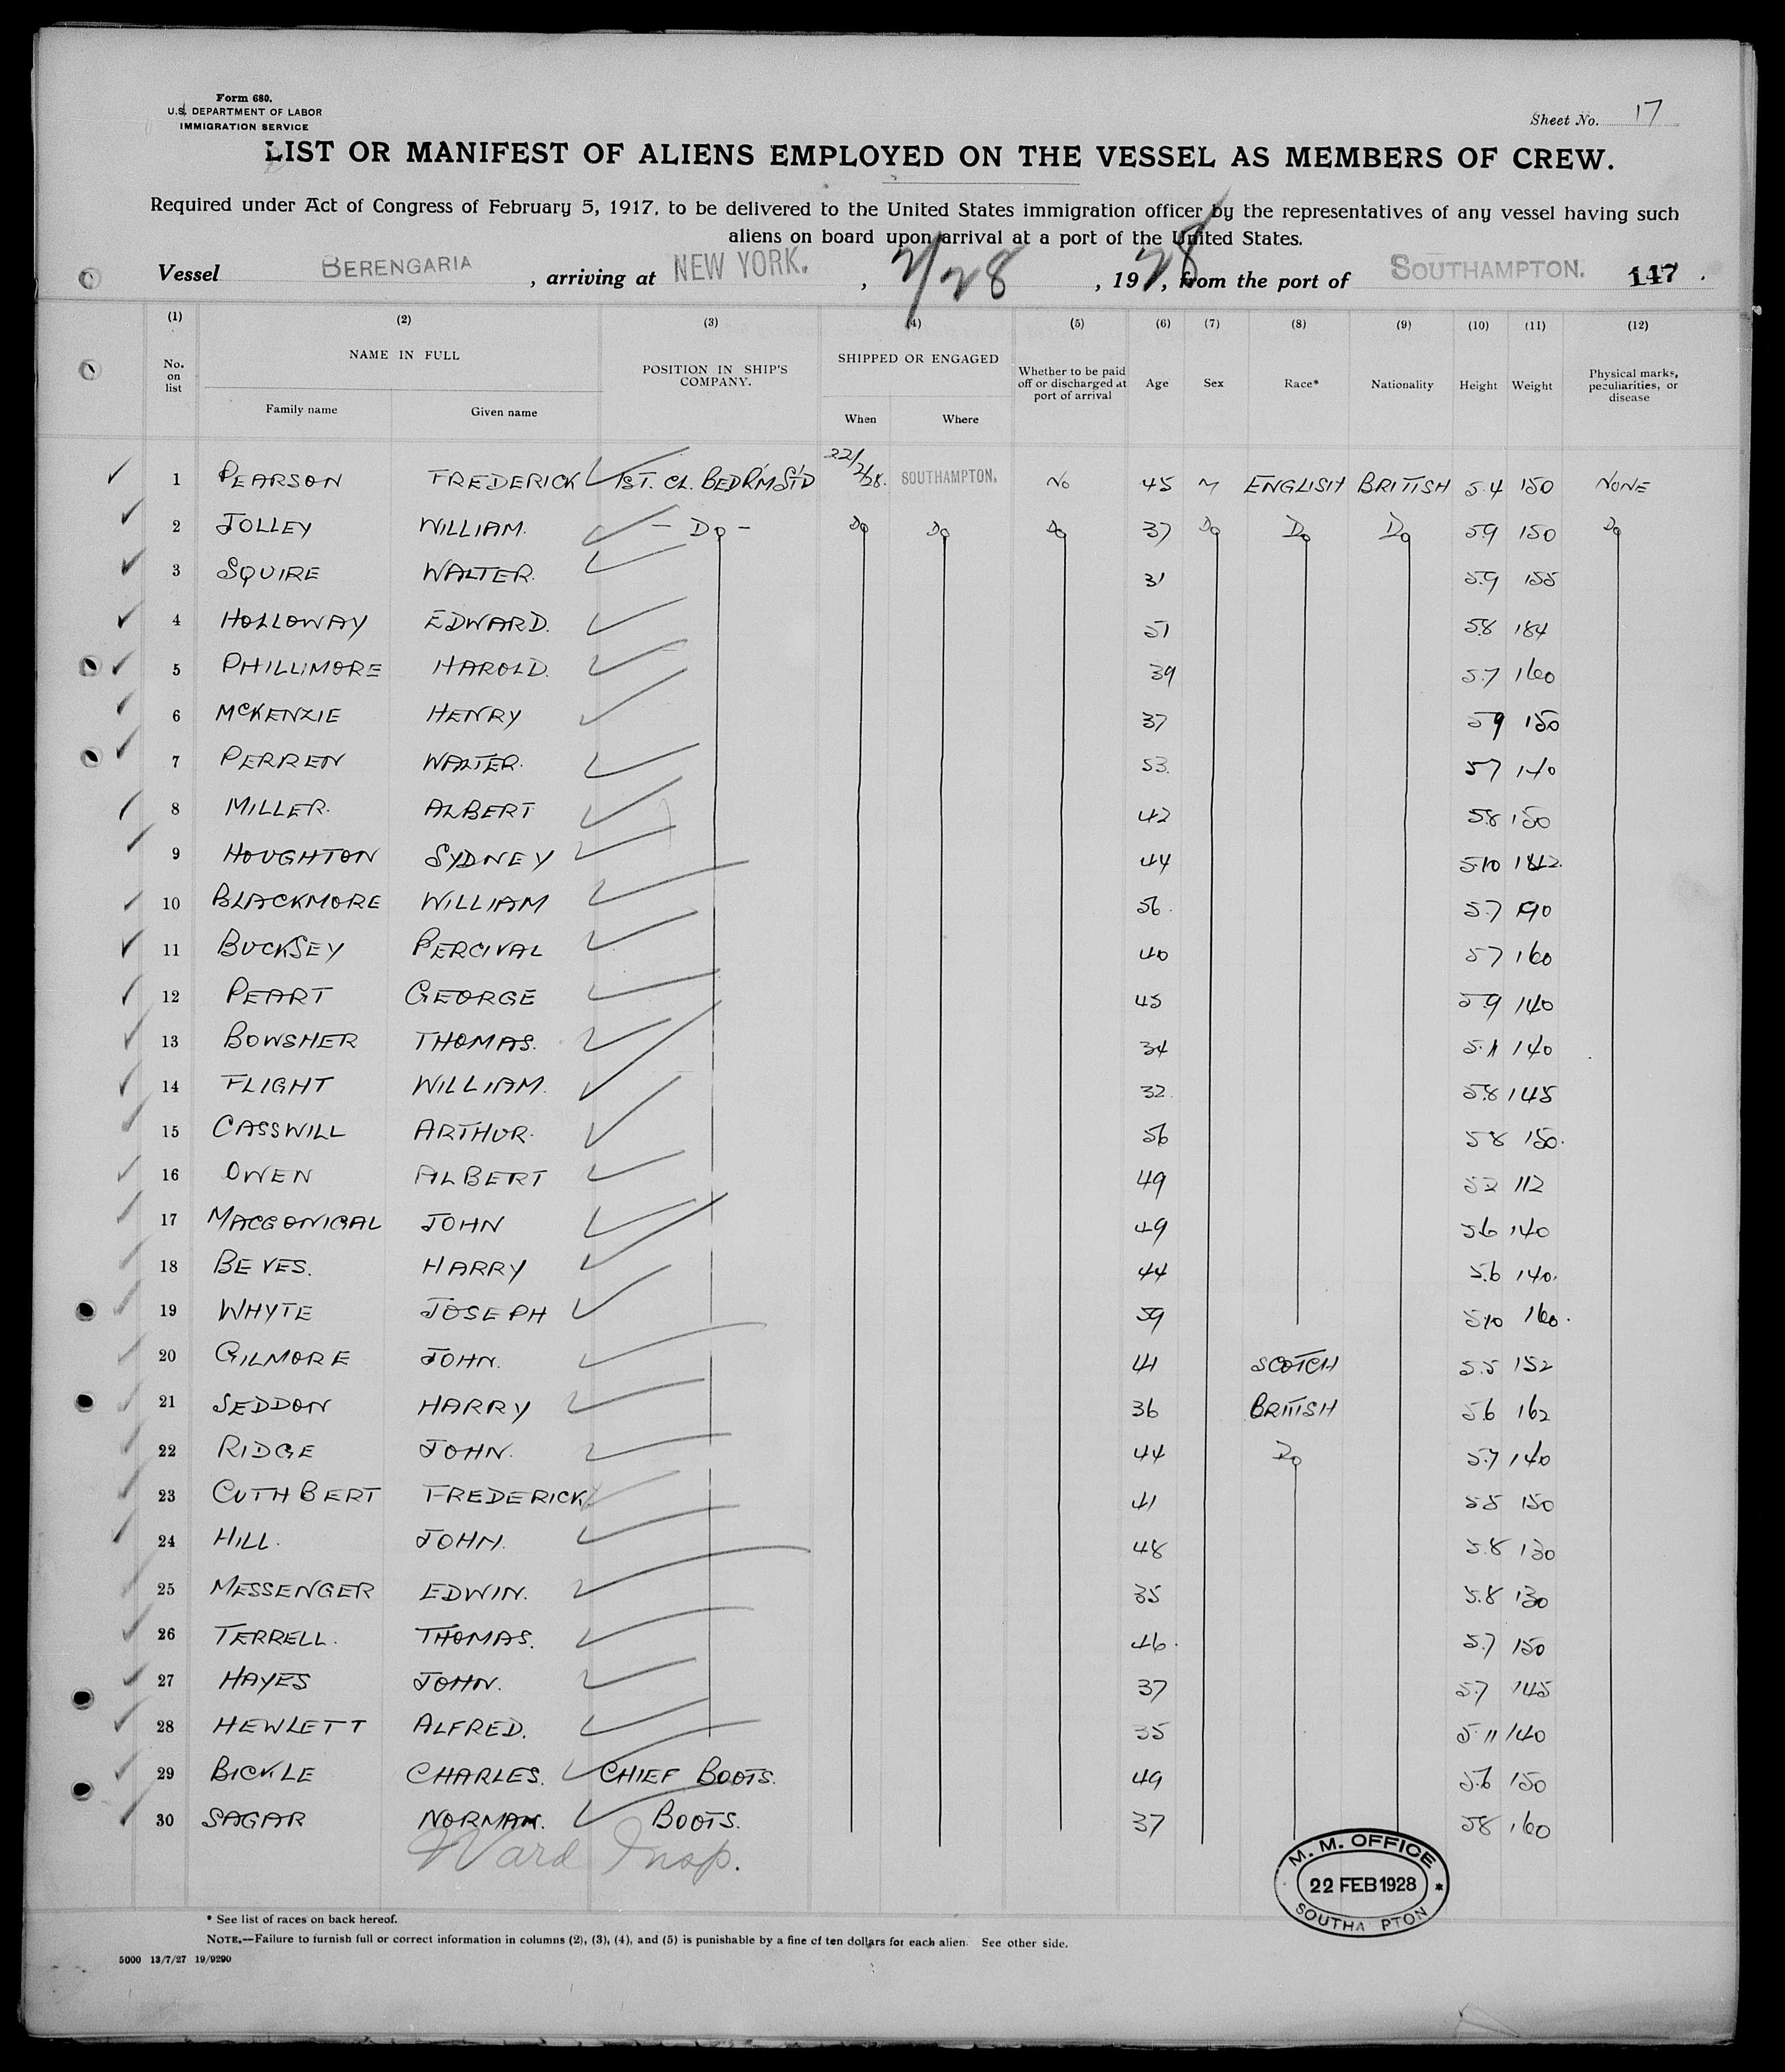 Form 680.
U.S. DEPARTMENT OF LABOR
IMMIGRATION SERVICE
Sheet No. 17
LIST OR MANIFEST OF ALIENS EMPLOYED ON THE VESSEL AS MEMBERS OF CREW.
Required under Act of Congress of February 5, 1917, to be delivered to the United States immigration officer by the representatives of any vessel having such
aliens on board upon arrival at a port of the United States.
Vessel BERENGARIA, arriving at NEW YORK., 2/28, 1928, from the port of SOUTHAMPTON. 147
(1) (2) (3) (4) (5) (6) (7) (8) (9) (10) (11) (12)
No. on list NAME IN FULL Family name Given name POSITION IN SHIP'S COMPANY. SHIPPED OR ENGAGED When Where Whether to be paid off or discharged at port of arrival Age Sex Race* Nationality Height Weight Physical marks, peculiarities, or disease
1 PEARSON FREDERICK 1ST. CL. BEDR'M ST'D 22/2/28. SOUTHAMPTON. No 45 M ENGLISH BRITISH 5.4 150 NONE
2 JOLLEY WILLIAM. - Do - Do Do Do 37 Do Do Do 5.9 150 Do
3 SQUIRE WALTER. 31 5.9 155
4 HOLLOWAY EDWARD. 51 5.8 184
5 PHILLIMORE HAROLD. 39 5.7 160
6 McKENZIE HENRY 37 5 9 150
7 PERREN WALTER. 53. 5 7 140
8 MILLER. ALBERT 42 5.8 150
9 HOUGHTON SYDNEY 44 5.10
10 BLACKMORE WILLIAM 56. 5.7 190
11 BUCKSEY PERCIVAL 40 5 7 160
12 PEART GEORGE 45 5 9 140
13 BOWSHER THOMAS. 34 140
14 FLIGHT WILLIAM. 32 5.8 145
15 CASSWILL ARTHUR. 56 5 8 150.
16 OWEN ALBERT 49 5 2 112
17 MACGONIGAL JOHN 49 5.6 140
18 BEVES. HARRY 44 5.6 140.
19 WHYTE JOSEPH 59 5.10 160.
20 GILMORE JOHN. 41 SCOTCH 5.5 152
21 SEDDON HARRY 36 BRITISH 5.6 162
22 RIDGE JOHN. 44 Do 5.7 140
23 CUTHBERT FREDERICK 41 5 5 150
24 HILL. JOHN. 48 5.8 130
25 MESSENGER EDWIN. 35 5.8 130
26 TERRELL. THOMAS. 46. 5.7 150
27 HAYES JOHN. 37 5.7 145
28 HEWLETT ALFRED. 35 5.11 140
29 BICKLE CHARLES. CHIEF BOOTS. 49 5.6 150
30 SAGAR NORMAN. BOOTS. 37 5.8 160
Ward Insp.
M. M. OFFICE
22 FEB 1928 *
SOUTHA PTON
* See list of races on back hereof.
NOTE.—Failure to furnish full or correct information in columns (2), (3), (4), and (5) is punishable by a fine of ten dollars for each alien. See other side.
5000 13/7/27 19/9290